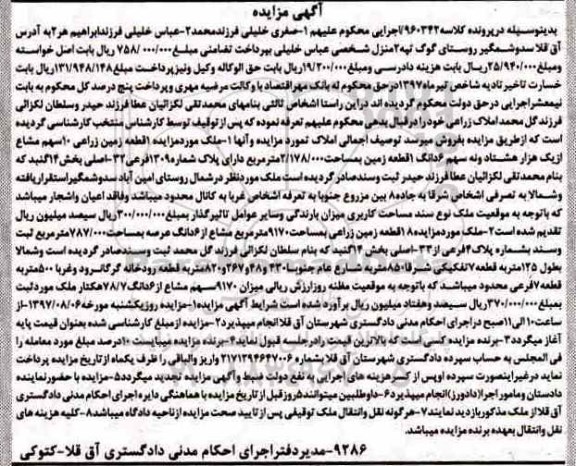 آگهی مزایده
بدینوسیله درپرونده کلاسه۹۶۰۳۴۲/اجرایی محکوم علیهم ۱-صفری خلیلی فرزندمحمد۲-عباس خلیلی فرزندابراهیم هر۲به آدرس
آق قلا سدوشمگیر روستای گوگ تپه۲منزل شخصی عباس خلیلی بپرداخت تضامنی مبلغ۷۵۸/۰۰۰/۰۰۰ریال بابت اصل خواسته
ومبلغ۲۵/۹۴۰/۰۰۰ریال بابت هزینه دادرسی ومبلغ۱۹/۲۰۰/۰۰۰ریال بابت حق الوکاله وکیل ونیزپرداخت مبلغ۱۳۱/۹۴۸/۱۴۸ریال بابت
خسارت تاخیر تادیه شاخص تیرماه۱۳۹۷درحق محکوم له بانک مهراقتصاد با وکالت مرضیه مهری وپرداخت پنج درصد کل محکوم به بابت
نیمعشراجرایی درحق دولت محکوم گردیده اند دراین راستا اشخاص ثالثی بنامهای محمدتقی لکزائیان عطا فرزند حیدر وسلطان لکزائی
فرزند گل محمد املاک زراعی خودرا درقبال بدهی محکوم علیهم تعرفه نموده که پس ازتوقیف توسط کارشناس منتخب کارشناسی گردیده
است که ازطریق مزایده بفروش میرسد توصیف اجمالی املاک تمورد مزایده وآنها ۱-ملک موردمزایده ۱قطعه زمین زراعی ۱۰سهم مشاع
ازیک هزار هشتاد ونه سهم ۶دانگ ۱قطعه زمین بمساحت۲/۱۷۸/۰۰۰مترمربع دارای پلاک شماره۱۳۰۹فرعی۳۲-اصلی بخش۱۴گنبد که
بنام محمدتقی لکزائیان عطا فرزند حیدر ثبت وسندصادر گردیده است ملک موردنظر درشمال روستای امین آباد سدوشمگیراستقراریافته
وشمالا به تصرفی اشخاص شرقا به جاده۸ بین مزروع جنوبا به تعرفه اشخاص غربا به کانال محدود میباشد وفاقد اعیان واشجار میباشد
که باتوجه به موقعیت ملک نوع سند مساحت کاربری میزان بارندگی وسایر عوامل تاثیرگذار بمبلغ۳۰۰/۰۰۰/۰۰۰ریال سیصد میلیون ریال
تقدیم شده است۲-ملک موردمزایده۱۸قطعه زمین زراعی بمساحت۹۱۷۰مترمربع مشاع از۶دانگ عرصه بمساحت۷۸۷/۰۰۰مترمربع ثبت
وسند بشماره پلاک۴فرعی از۳۳-اصلی بخش ۱۴گنبد که بنام سلطان لکزائی فرزند گل محمد ثبت وسندصادر گردیده است وشمالا
بطول ۱۲۵متربه قطعه۷تفکیکی شرقا۸۵۰متربه شارع عام جنوبا۴۳۰و۴۸و۲۶۷و۸۲۰متربه قطعه رودخانه گرگانرود وغربا ۵۰۰متربه
قطعه۷فرعی محدود میباشد که باتوجه به موقعیت مظنه روزارزش ریالی میزان ۹۱۷۰سهم مشاع از۶دانگ۷۸/۷هکتار ملک موردثبت
بمبلغ۳۷۰/۰۰۰/۰۰۰ریال سیصد وهفتاد میلیون ریال برآورد شده است شرایط آگهی مزایده۱-مزایده روزیکشنبه مورخه۱۳۹۷/۰۸/۰۶-از
ساعت۱۰الی۱۱صبح دراجرای احکام مدنی دادگستری شهرستان آق قلاانجام میپذیرد۲-مزایده از مبلغ کارشناسی شده بعنوان قیمت پایه
آغاز میگردد۳-برنده مزایده کسی است که بالاترین قیمت رادرجلسه قبول نماید۴-برنده مزایده میبایست ۱۰درصد مبلغ مورد معامله را
فی المجلس به حساب سپرده دادگستری شهرستان آق قلا بشماره ۲۱۷۱۲۹۴۶۴۷۰۰۶ واریز والباقی را ظرف یکماه ازتاریخ مزایده پرداخت
نماید درغیراینصورت سپرده اوپس از کسرهزینه های اجرایی به نفع دولت ضبط وآگهی مزایده تجدید میگردد۵-مزایده با حضورنماینده
دادستان ومامور اجرا(دادورز)انجام میپذیرد۶-داوطلبین میتوانند۵روزقبل از تاریخ مزایده با هماهنگی دایره اجرای احکام مدنی دادگستری
آق قلا از ملک مذکوربازدید نمایند۷-هرگونه نقل وانتقال ملک توقیفی پس از تایید صحت مزایده ازناحیه دادگاه میباشد۸-کلیه هزینه های
نقل وانتقال بعهده برنده مزایده میباشد.
۹۲۸۶-مدیردفتراجرای احکام مدنی دادگستری آق قلا-کتوکی